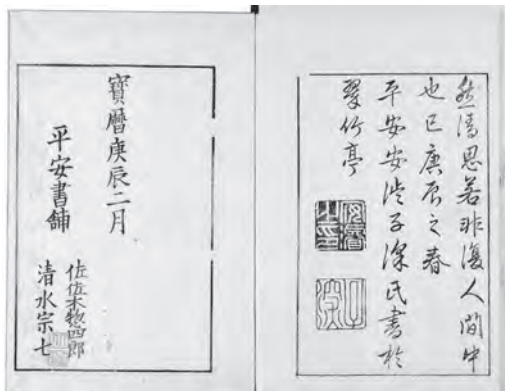 然清思若非復人間中
也已庚辰之春
平安安澂子深民書於
翠竹亭
寶曆庚辰二月
平安書舖
佐佐木惣四郎
清水宗七